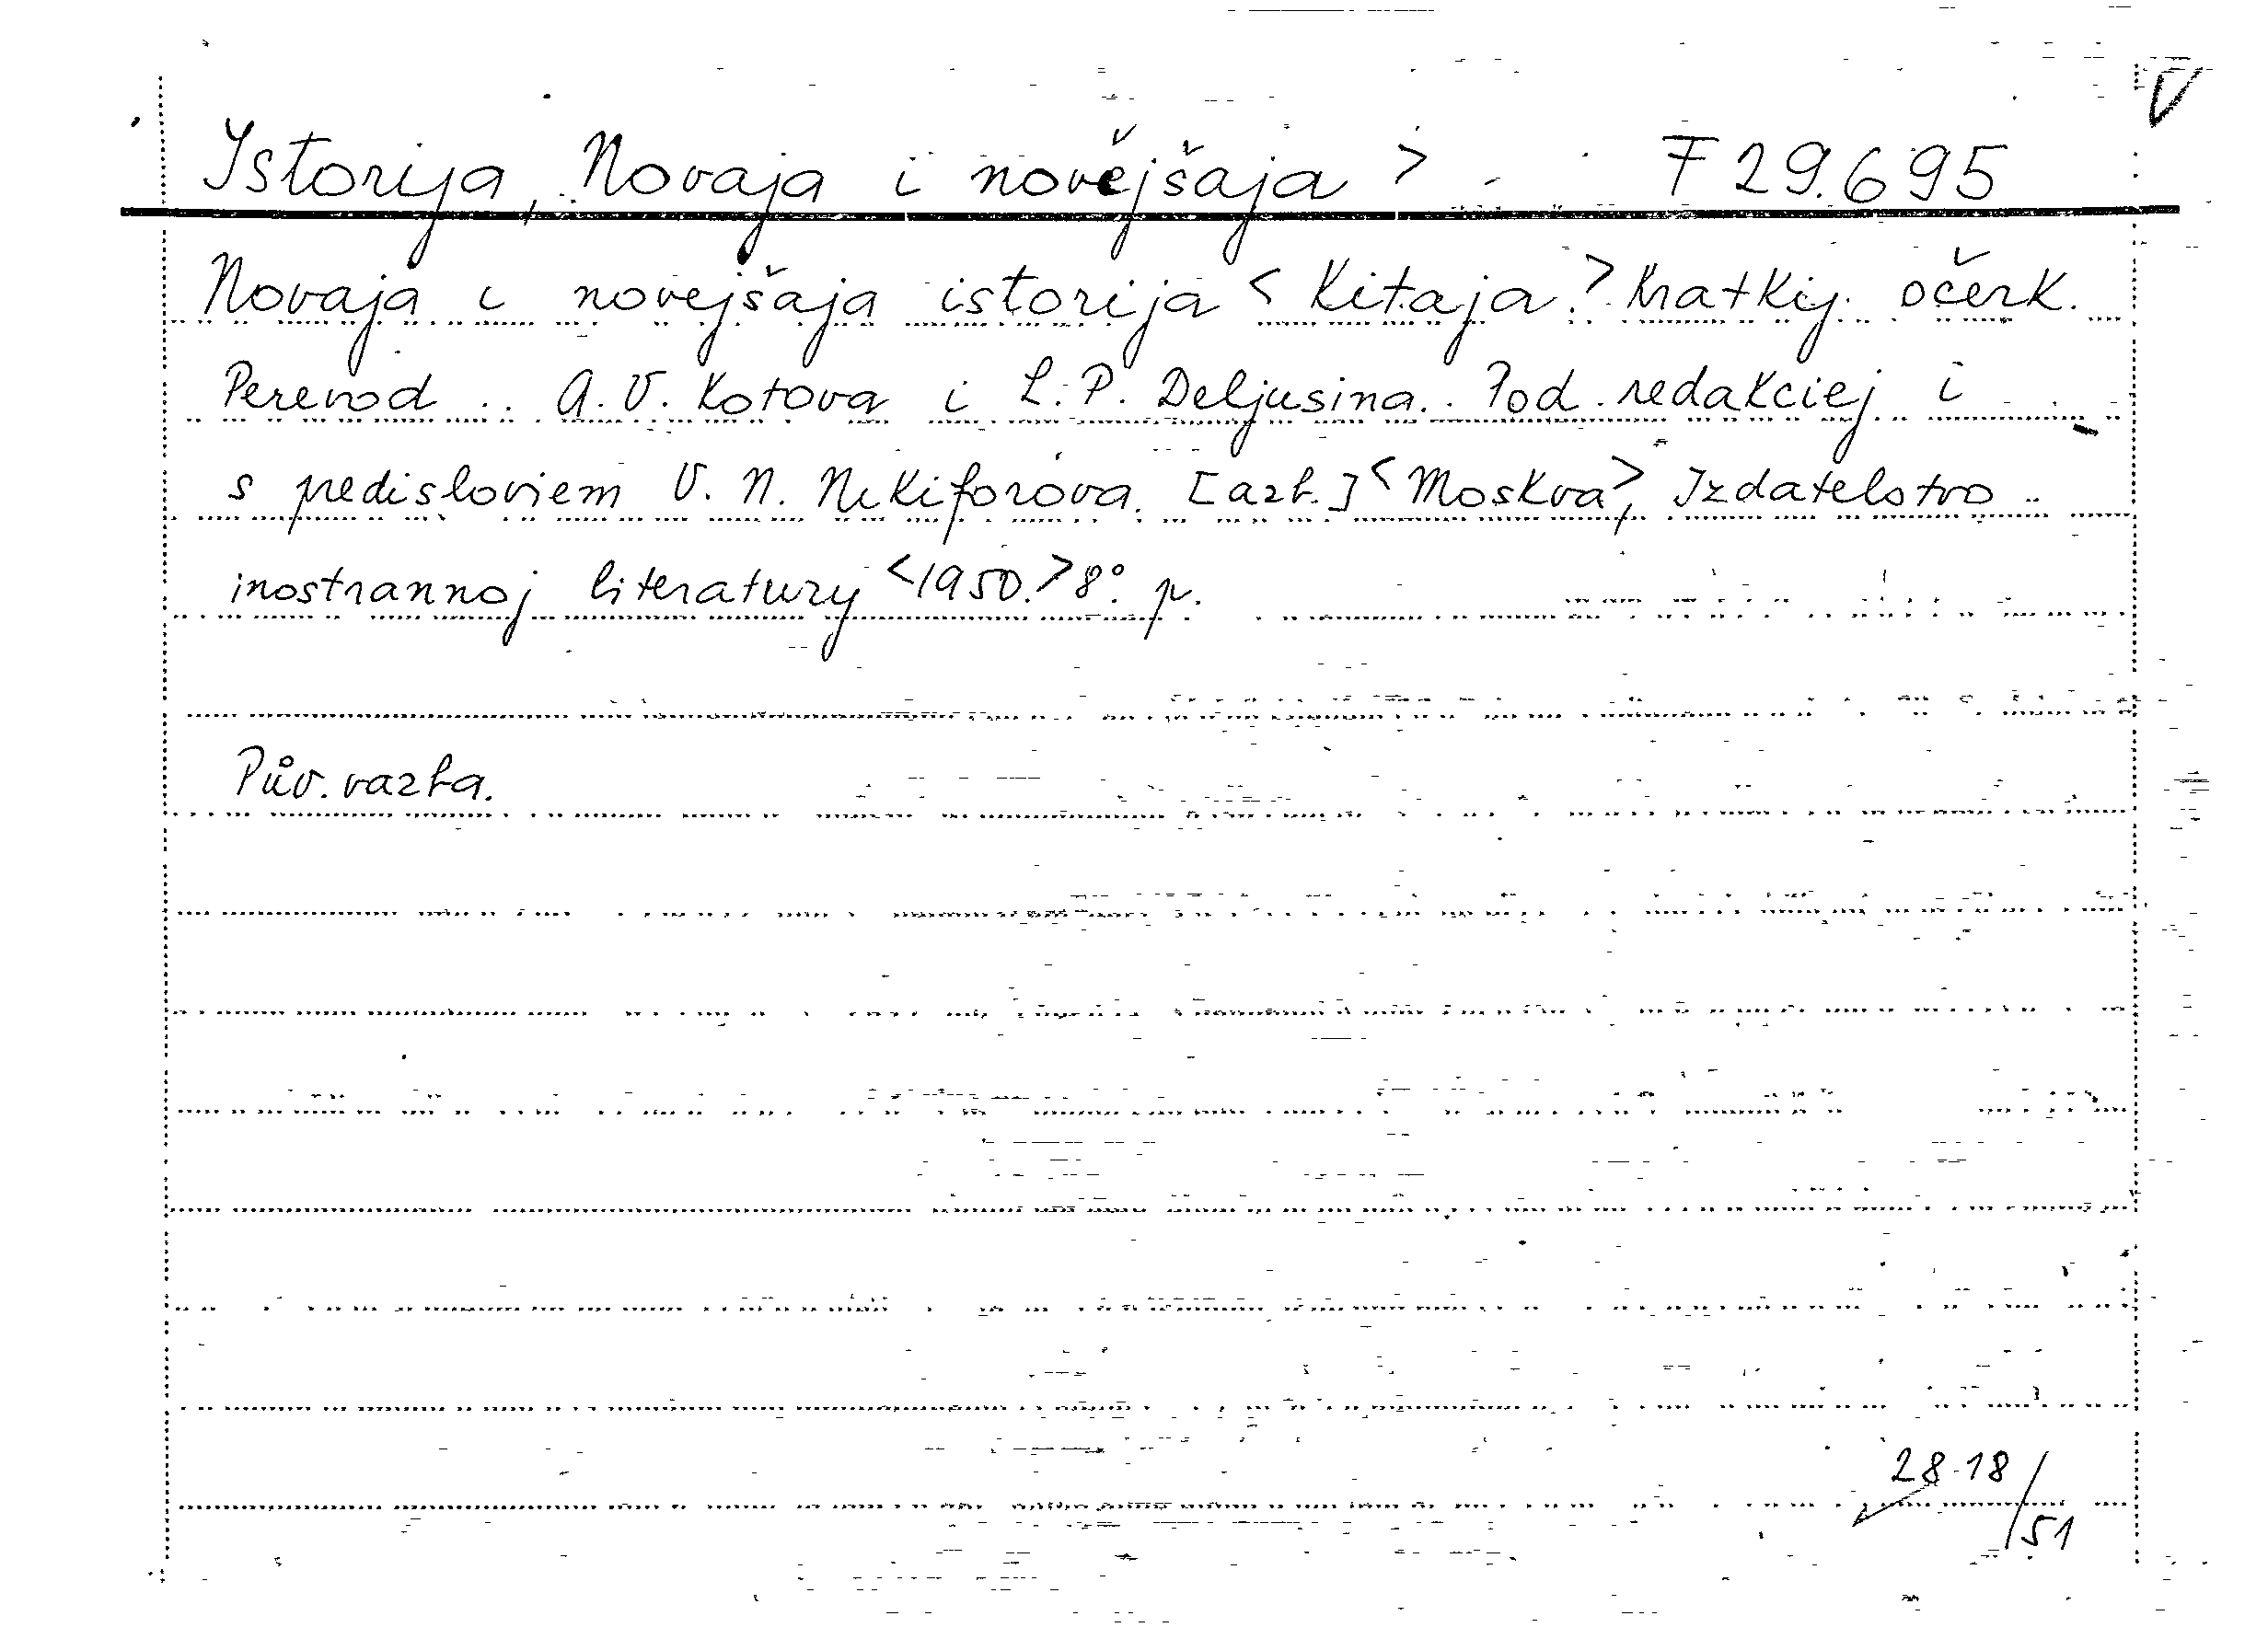 V
Istorija, Novaja i novějšaja > F 29.695
Novaja i novejšaja istorija < Kitaja.> Kratkij očerk.
Perevod .. A. V. Kotova i L. P. Deljusina. Pod redakciej i
s predisloviem V. N. Nikiforova. [azb.] <Moskva>, Izdatelstvo
inostrannoj literatury <1950.> 8°. p.
Pův. vazba.
28-18/51